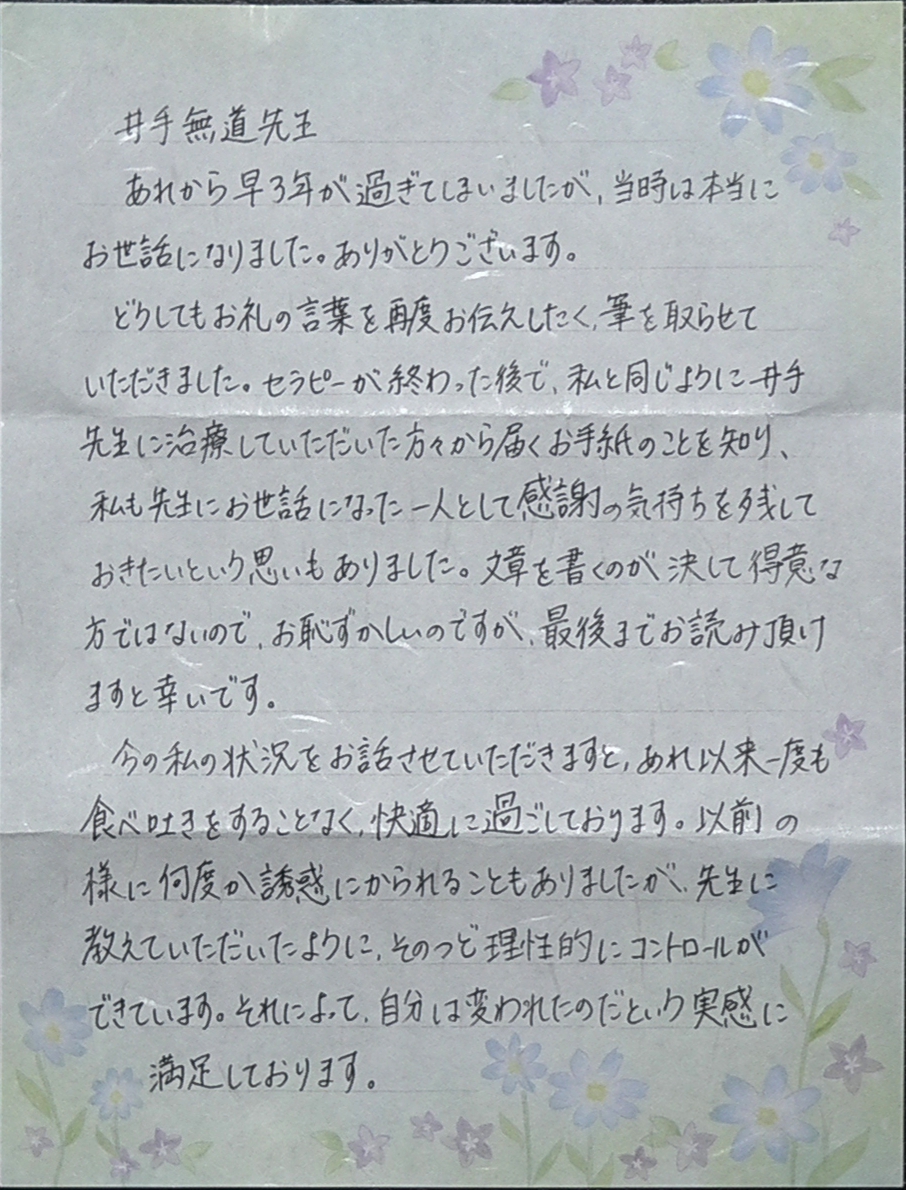 井手無道先生
あれから早3年が過ぎてしまいましたが、当時は本当に
お世話になりました。ありがとうございます。
どうしてもお礼の言葉を再度お伝えしたく、筆を取らせて
いただきました。セラピーが終わった後で、私と同じように井手
先生に治療していただいた方々から届くお手紙のことを知り、
私も先生にお世話になった一人として感謝の気持ちを残して
おきたいという思いもありました。文章を書くのが決して得意な
方ではないので、お恥ずかしいのですが、最後までお読み頂け
ますと幸いです。
今の私の状況をお話させていただきますと、あれ以来一度も
食べ吐きをすることなく、快適に過ごしております。以前の
様に何度か誘惑にかられることもありましたが、先生に
教えていただいたように、そのつど理性的にコントロールが
できています。それによって、自分は変われたのだという実感に
満足しております。